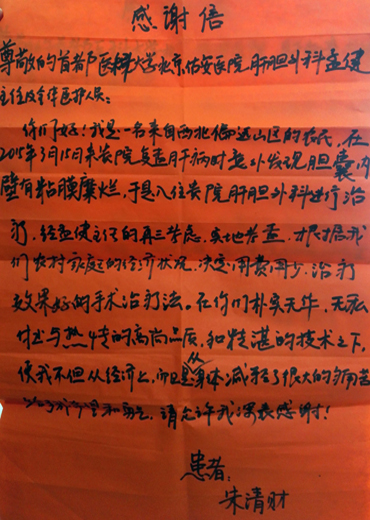 感谢信
尊敬的首都医科大学北京佑安医院肝胆外科孟健
主任及全体医护人员:
你们好!我是一名来自西北偏远山区的农民,在
2015年3月15日来贵院复查肝病时意外发现胆囊内
壁有粘膜糜烂,于是入住贵院肝胆外科进行治
疗,经孟健主任的再三考虑,实地考查,才根据我
们农村家庭的经济状况,决定用费用少,治疗
效果好的手术治疗法。在你们朴实无华,无私
付出与热情的高尚品质,和精湛的技术之下,
使我不但从经济上,而且从身体,减轻了很大的痛苦
和勇气,请允许我深表感谢!
患者:
朱清财